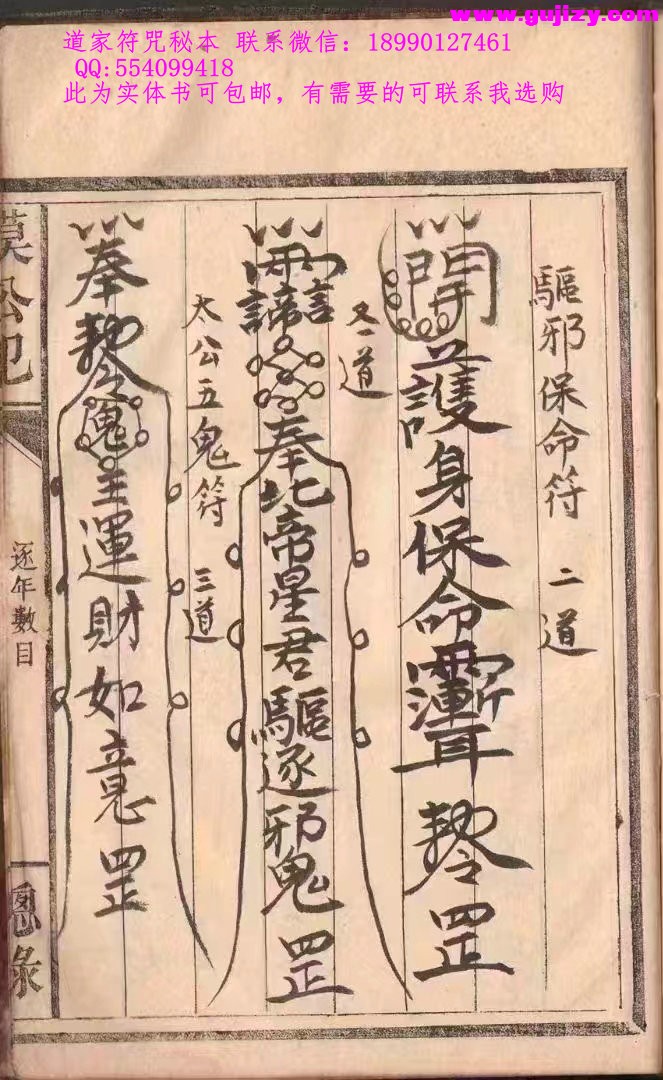 www.gujizy.com
道家符咒秘本 联系微信：18990127461
QQ:554099418
此为实体书可包邮，有需要的可联系我选购
驅邪保命符 二道
護身保命
敕令罡
道
奉北帝星君驅逐邪鬼罡
太公五鬼符 三道
奉敕令鬼主運財如意罡
逐年數目
總錄